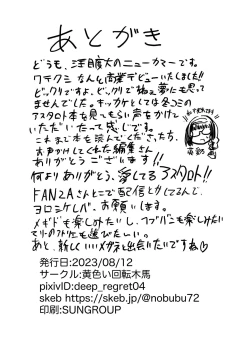 あとがき
どうも、注目度大のニューカマーです。
ワテクミなんと商業デビューいたしました!!
ビックリですよ、ビックリですねぇ夢にも思って
ませんでした。キッカケとしては冬コミの
アスタロト本を見てもらい声をかけて
いただいたって感じです。
これまで本を読んでくださった方、
お声がけしてくれた編集さん
ありがとうございます!!
何よりありがとう、愛してるアスタロト!!
FANZAさんとこで配信とかしてるんで、
ヨロシケレバ、お願いします。
メギドも楽しみたいし、
も楽しみたい
マリーのアトリエも遊びたいっ。
あと、新しいいいメガネと出会いたいですね♡
発行日:2023/08/12
サークル:黄色い回転木馬
pixivID:deep_regret04
skeb https://skeb.jp/@nobubu72
印刷:SUNGROUP